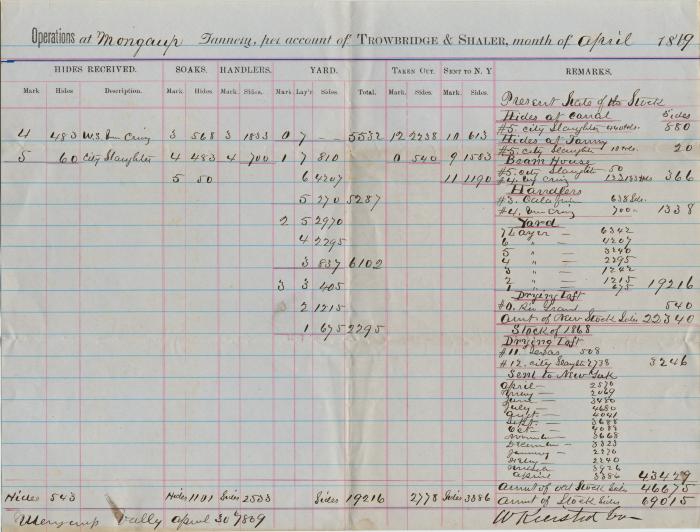 Operations at Mongaup Tannery, per account of TROWBRIDGE & SHALER, month of April 1869
HIDES RECEIVED. SOAKS. HANDLERS. YARD. TAKEN OUT. SENT TO N. Y. REMARKS.
Mark Hides Description. Mark. Hides. Mark. Sides. Mark Lay'r Sides. Total. Mark. Sides. Mark. Sides.
Present State of the Stock
Hides at Canal Sides
4 483 3 568 3 1833 0 7 - - 5532 12 2238 10 613
#5. City Slaughter 440 Hds. 880
5 60 City Slaughter 4 483 4 700 1 7 810 0 540 9 1583
#5 City Slaughter 10 Hds. 20
Beam House
5 50 6 4207 11 1190
#5. City Slaughter 50
366
Handlers
5 270 5287
#3. 638 Sds.
#4. 700 " 1338
2 5 2970
Yard
7 Layer — 6342
4 2295
6 " — 4207
5 " — 3240
3 837 6102
4 " — 2295
3 " — 1242
3 3 405
2 " — 1215
1 " — 675 19216
Drying Loft
2 1215
#0. Rio Grand 540
Amnt of New Stock Sides 22340
1 675 2295
Stock of 1868
Drying Loft
#11. Texas 508
#12. City Slaughter 2738 3246
Sent to New York
April — 2570
2069
June — 3480
July — 4680
Augt — 4041
Sept. — 3688
Oct — 4088
November — 3668
December — 3323
January — 2276
2240
3926
April 3386 43429
Amnt of Old Stock Sides 46675
Hides 543 Hides 1101 Sides 2533 Sides 19216 2778 Sides 3386
Amnt of Stock Sides 69015
Mongaup Vally April 30 1869
W Kiersted Co